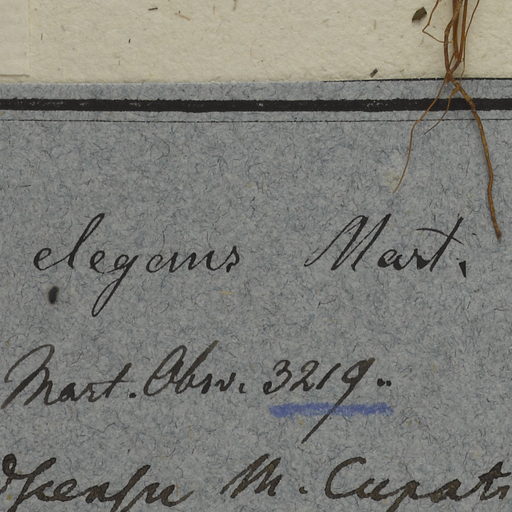 elegans Mart.
Mart. Obsv. 3219.
M. Cupati